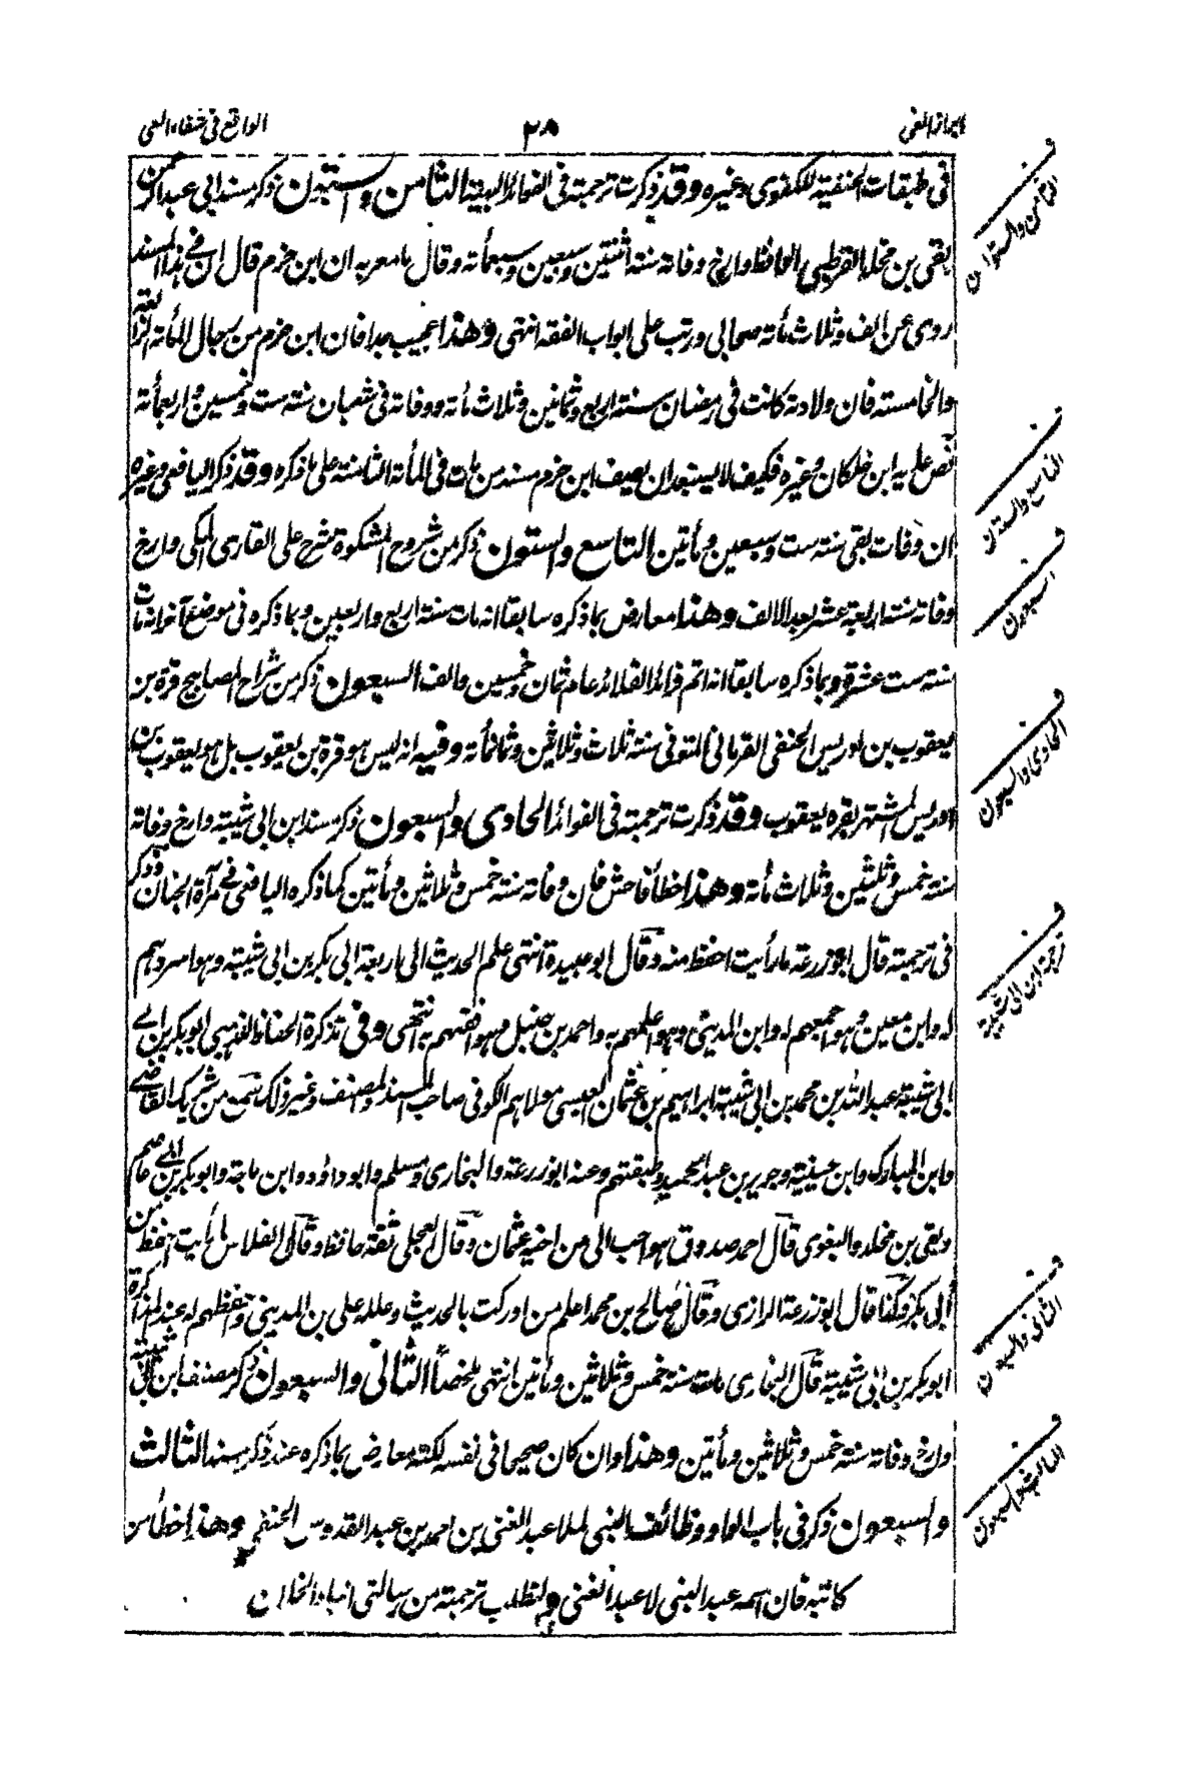 ابراز الغي
٢٨
الواقع في شفاء العي
في طبقات الحنفية للكفوي وغيره وقد ذكرت ترجمته في الفوائد البهية الثامن والستون ذكر مسند ابي عبد الرحمن
بقي بن مخلد القرطبي الحافظ وارخ وفاته سنة اثنتين وسبعين وسبعمأته وقال ما معربه ان ابن حزم قال ان في هذا المسند
روى عن الف وثلاث مأته صحابي ورتب على ابواب الفقه انتهى وهذا عجيب جدا فان ابن حزم من رجال المأته الرابعة
والخامسته فان ولادته كانت في رمضان سنته اربع وثمانين وثلاث مأته ووفاته في شعبان سنته ست وخمسين واربعمأته
نص عليه ابن خلكان وغيره فكيف لا يستبعد ان يصف ابن حزم مسند من مات في المأته الثامنته على ما ذكره وقد ذكر اليافعي وغيره
ان وفات بقي سنته ست وسبعين ومأتين التاسع والستون ذكر من شروح المشكوة شرح علي القاري المكي وارخ
وفاته سنته اربعة عشر بعد الالف وهذا معارض بما ذكره سابقا انه مات سنته اربع واربعين وبما ذكره في موضع آخر انه مات
سنته ست عشرة وبما ذكره سابقا انه اتم فرائد القلائد عام ثمان وخمسين والف السبعون ذكر من شراح المصابيح قرة بن
يعقوب بن ادريس الحنفي القرماني المتوفى سنته ثلاث وثلاثين وثمانمأته وفيه انه ليس هو قرة بن يعقوب بل هو يعقوب بن
ادريس المشتهر بقره يعقوب وقد ذكرت ترجمته في الفوائد الحادي والسبعون ذكر مسند ابن ابي شيبته وارخ وفاته
سنته خمس وثلثين وثلاث مأته وهذا خطأ فاحش فان وفاته سنته خمس وثلاثين ومأتين كما ذكره اليافعي في مرآة الجنان وذكر
في ترجمته قال ابو زرعته ما رأيت احفظ منه وقال ابو عبيدة انتهى علم الحديث الى اربعة ابي بكر بن ابي شيبته وهو اسردهم
له وابن معين وهو اجمعهم له وابن المديني وهو اعلمهم به واحمد بن حنبل وهو افقههم به انتهى وفي تذكرة الحفاظ للذهبي ابو بكر بن ابي
ابي شيبة عبد الله بن محمد بن ابي شيبة ابراهيم بن عثمان العبسي مولاهم الكوفي صاحب المسند والمصنف وغير ذلك سمع من شريك القاضي
وابن المبارك وابن عيينة وجرير بن عبد الحميد وطبقتهم وعنه ابو زرعة والبخاري ومسلم وابو داؤد وابن ماجة وابو بكر بن ابي عاصم
وبقي بن مخلد والبغوي قال احمد صدوق هو احب الي من اخيه عثمان وقال العجلي ثقة حافظ وقال الفلاس ما رأيت احفظ من
ابي بكر وكذا قال ابو زرعة الرازي وقال صالح بن محمد اعلم من ادركت بالحديث وعلله علي بن المديني واحفظهم له عند المذاكرة
ابو بكر بن ابي شيبة قال البخاري مات سنته خمس وثلاثين ومأتين انتهى ملخصاً الثاني والسبعون ذكر مصنف ابن ابي شيبته
وارخ وفاته سنته خمس وثلاثين ومأتين وهذا وان كان صحيحا في نفسه لكنه معارض بما ذكره عند ذكر مسنده الثالث
والسبعون ذكر في باب الواو وظائف النبي لملا عبد الغني بن احمد بن عبد القدوس الحنفي وهذا خطأ من
كاتبه فان اسمه عبد النبي لا عبد الغني ولتطلب ترجمته من رسالتي انباء الخلان
الثامن والستون
التاسع والستون
السبعون
الحادي والسبعون
ترجمة ابن ابي شيبة
الثاني والسبعون
الثالث والسبعون